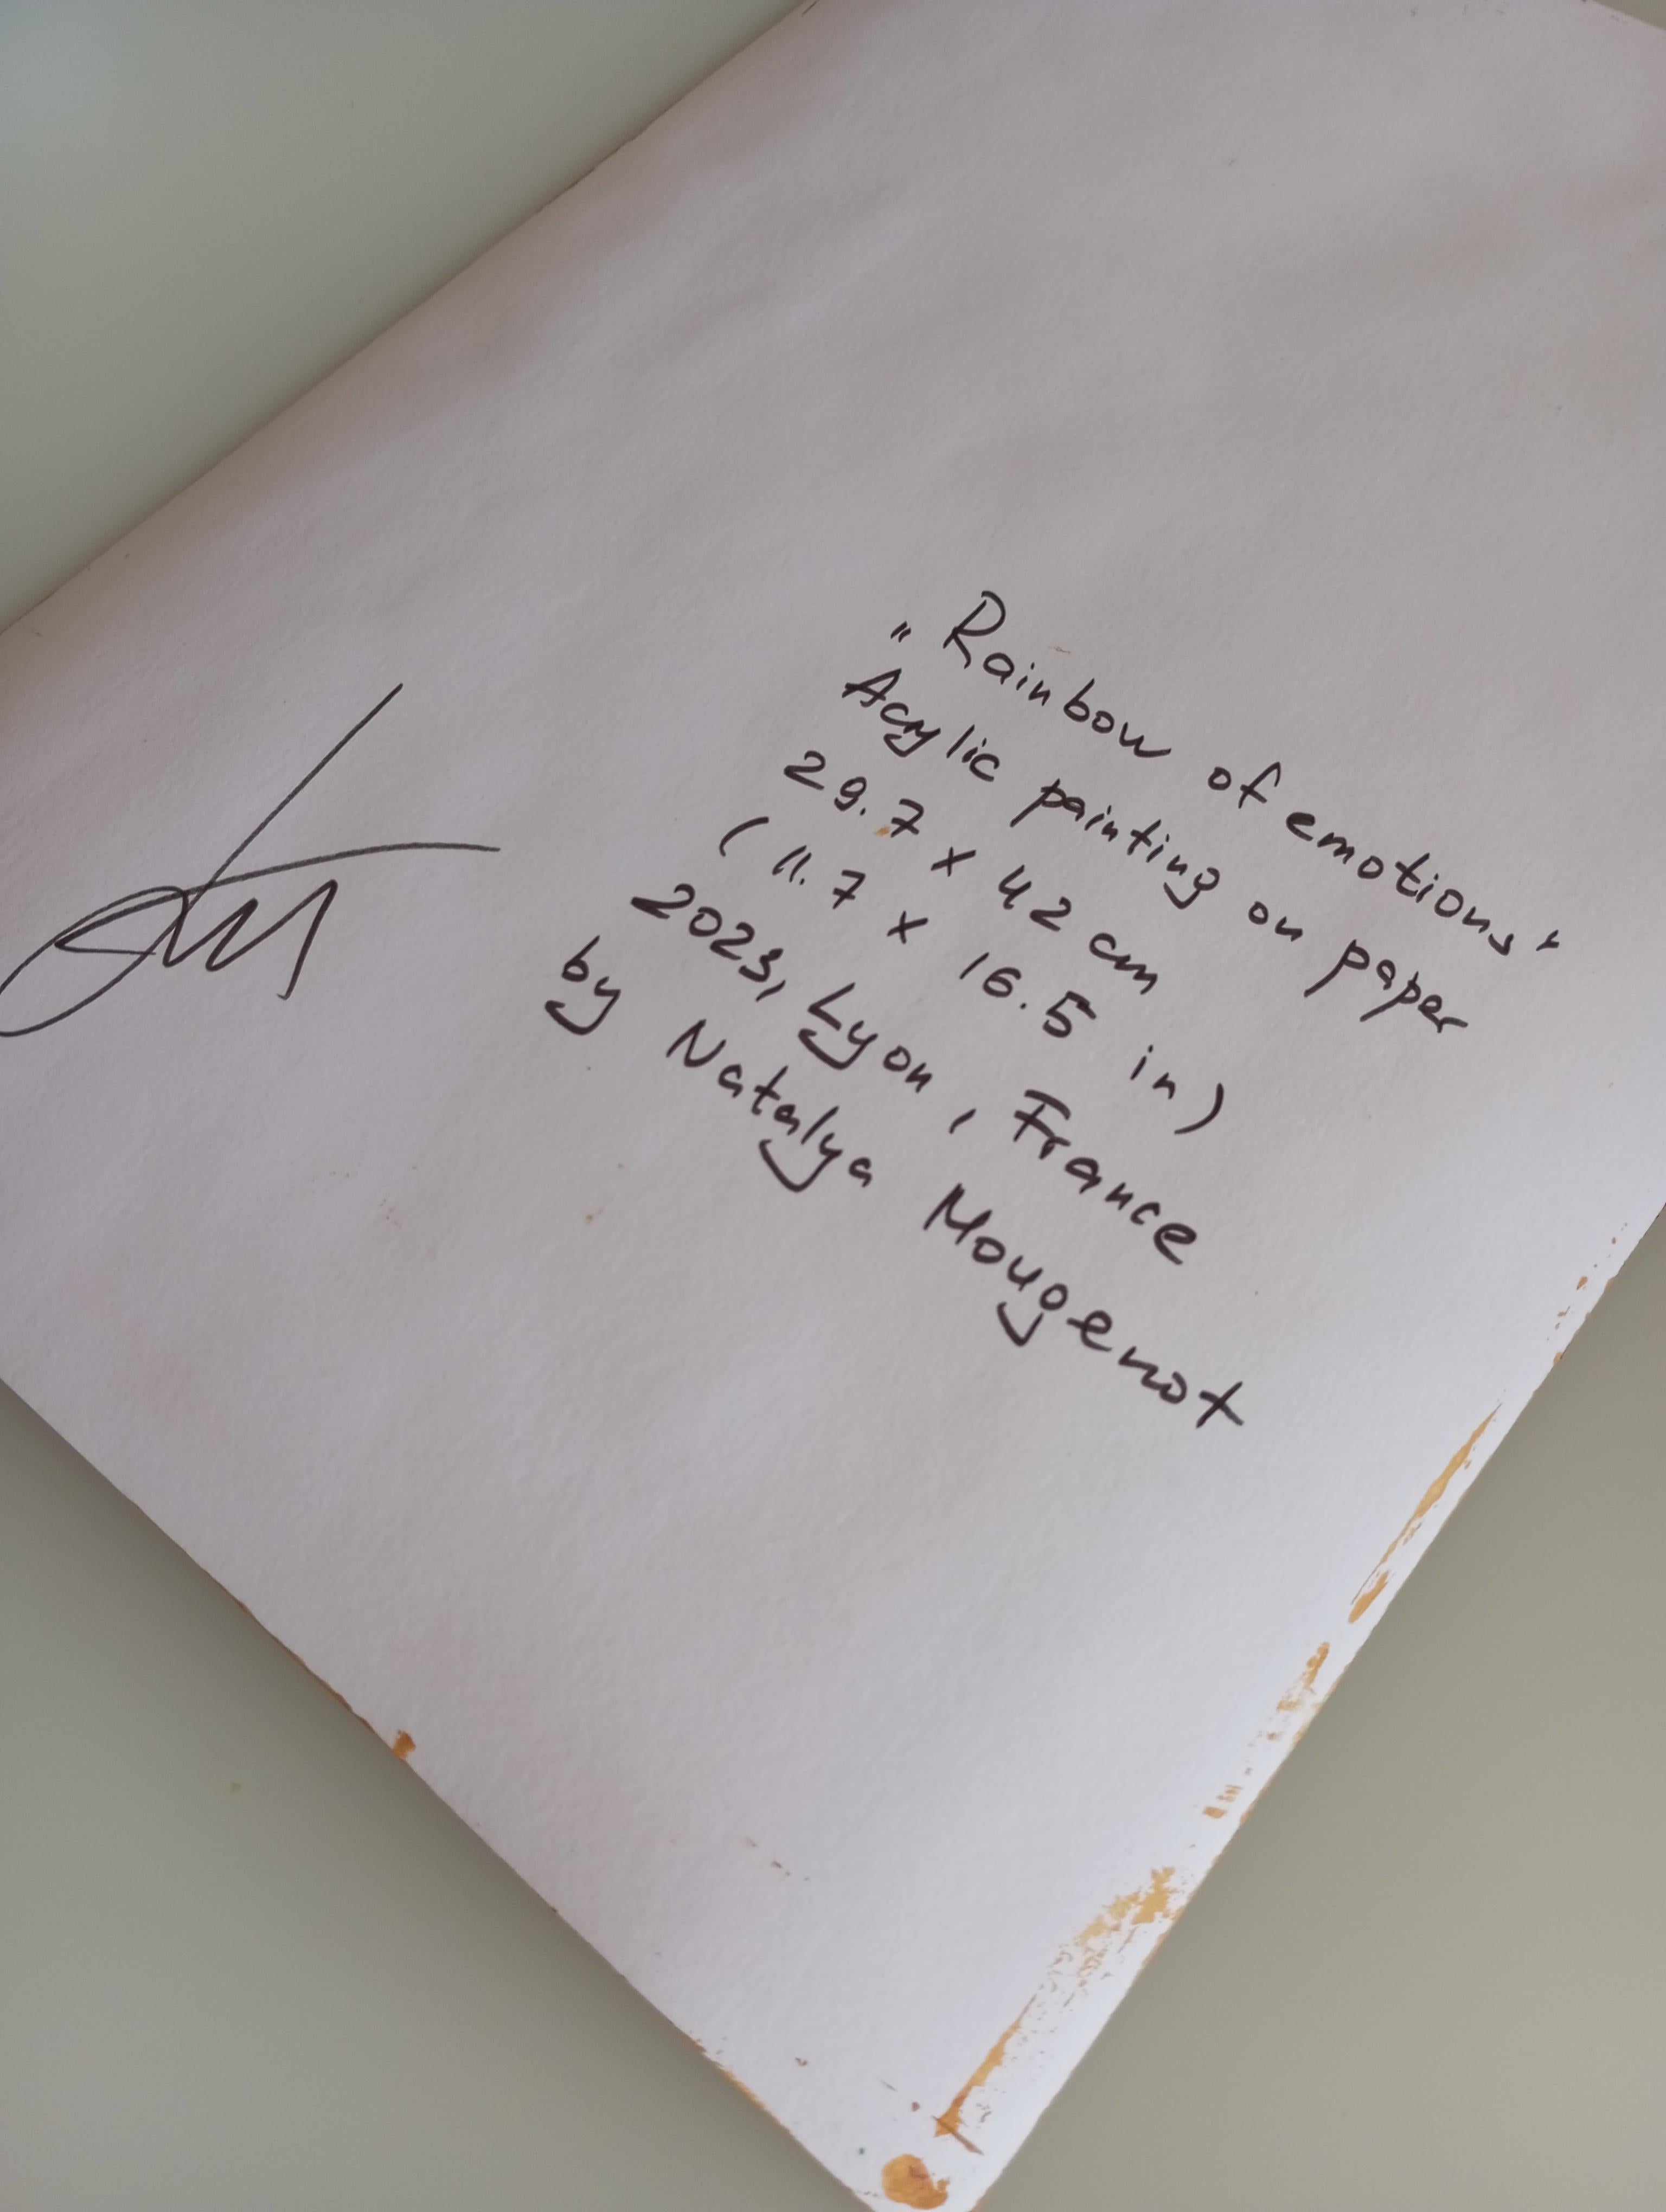 "Rainbow of emotions"
Acrylic painting on paper
29.7 x 42 cm
(11.7 x 16.5 in)
2023, Lyon, France
by Natalya Mougenot